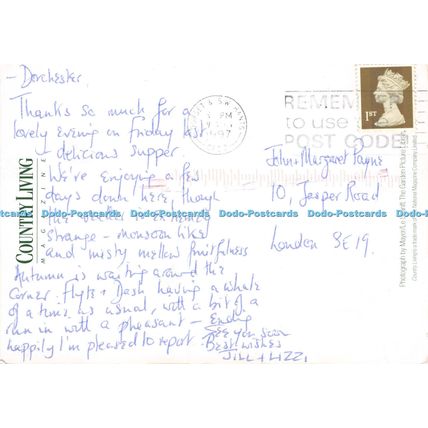 - Dorchester.
Thanks so much for a
lovely evening on Friday last
- delicious supper.
We're enjoying a few
days down here, though
the weather is extremely
strange - monsoon like
and misty mellow fruitfulness
Autumn is waiting around the
corner. Flyte + Dash having a whale
of a time as usual, with a bit of a
run in with a pheasant - Ending
happily I'm pleased to report
See you soon
Best wishes
JILL + LIZZI
COUNTRY LIVING
MAGAZINE
& S.W. HANTS
PM
1997
REMEMBER
to use the
POST CODE
1ST
John + Margaret Payne
10, Jasper Road
London SE19.
Photograph by The Garden Picture Library
National Magazine Company Limited
Dodo-Postcards Dodo-Postcards Dodo-Postcards Dodo-Postcards Dodo-Postcards Dodo-Postcards